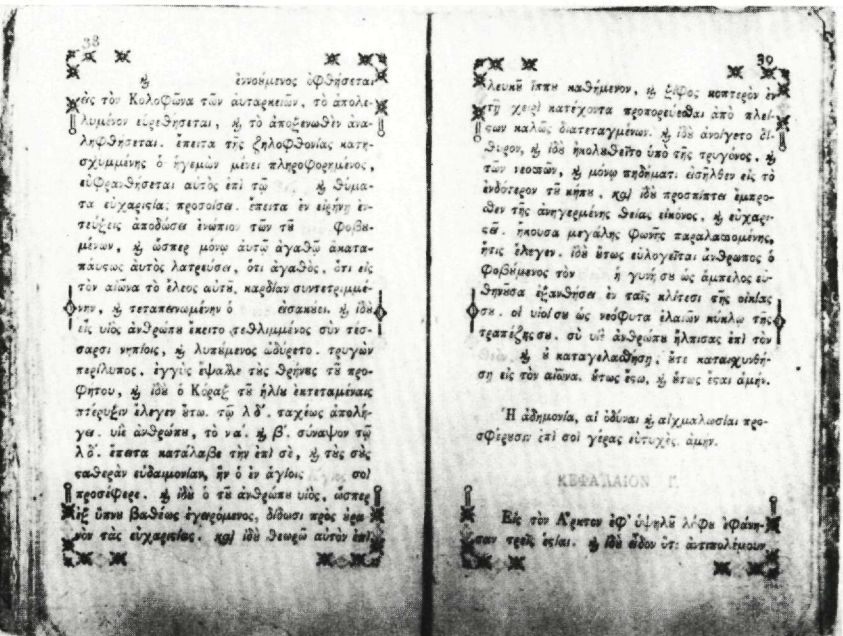 38
ϗ ἐννούμενος ὀφθήσεται
εἰς τὸν Κολοφῶνα τῶν αὐταρκειῶν, τὸ ἀπολε-
λυμένον εὑρεθήσεται, ϗ τὸ ἀποξενωθὲν ἀνα-
ληφθήσεται. ἔπειτα τῆς ξηλοφθονίας κατη-
σχυμμένης ὁ ἡγεμὼν μένει πληροφορημένος,
εὐφρανθήσεται αὐτὸς ἐπὶ τῷ ϗ θύμα-
τα εὐχαριϛίας προσοίσει. ἔπειτα ἐν εἰρήνῃ ἐν-
τεύξεις ἀποδώσει ἐνώπιον τῶν τȣ͂ φοβȣ-
μένων, ϗ ὥσπερ μόνῳ αὐτῷ ἀγαθῷ ἀκατα-
παύϛως αὐτὸς λατρεύσει, ὅτι ἀγαθὸς, ὅτι εἰς
τὸν αἰῶνα τὸ ἔλεος αὐτȣ͂, καρδίαν συντετριμμέ-
νην, ϗ τεταπεινωμένην ὁ εἰσακȣ́ει. ϗ ἰδȣ̀
εἷς υἱὸς ἀνθρώπȣ ἔκειτο τεθλιμμένος σὺν τέσ-
σαρσι νηπίοις, ϗ λυπȣ́μενος ὠδύρετο. τρυγὼν
περίλυπος. ἐγγὺς ἔψαλλε τȣ̀ς θρήνȣς τȣ͂ προ-
φήτȣ, ϗ ἰδȣ̀ ὁ Κόραξ τȣ͂ ἡλίȣ ἐκτεταμέναις
πτέρυξιν ἔλεγεν ȣ̔́τω. τῷ λδ΄. ταχέως ἀπολή-
γει. υἱὲ ἀνθρώπȣ, τὸ να΄. ϗ β΄. σύναψον τῷ
λδ΄. ἔπειτα κατάλαβε τὴν ἐπὶ σὲ, ϗ τȣ̀ς σȣ̀ς
ϛαθερὰν εὐδαιμονίαν, ἣν ὁ ἐν ἁγίοις ἅγιος σοὶ
προσέφερε. ϗ ἰδȣ̀ ὁ τȣ͂ ἀνθρώπȣ υἱὸς, ὥσπερ
ἐξ ὕπνȣ βαθέως ἐγειρόμενος, δίδωσι πρὸς ȣ̓ρα-
νὸν τὰς εὐχαριϛίας. καὶ ἰδȣ̀ θεωρῶ αὐτὸν ἐπὶ
39
λευκȣ͂ ἵππȣ καθήμενον, ϗ ξίφος κοπτερὸν ἐν
τῇ χειρὶ κατέχοντα προπορεύεσθαι ἀπὸ πλεί-
ϛων καλῶς διατεταγμένων. ϗ ἰδȣ̀ ἀνοίγετο δί-
θυρον, ϗ ἰδȣ̀ ἠκολȣθεῖτο ὑπὸ τῆς τρυγόνος, ϗ
τῶν νεοσσῶν, ϗ μόνῳ πηδήματι εἰσῆλθεν εἰς τὸ
ἐνδότερον τȣ͂ κήπȣ. καὶ ἰδȣ̀ προσπίπτει ἔμπρο-
σθεν τῆς ἀνηγερμένης θείας εἰκόνος, ϗ εὐχαρι-
ϛεῖ. ἤκȣσα μεγάλης φωνῆς παραλασσομένης,
ἥτις ἔλεγεν. ἰδȣ̀ ȣ̔́τως εὐλογεῖται ἄνθρωπος ὁ
φοβȣ́μενος τὸν ἡ γυνή σȣ ὡς ἄμπελος εὐ-
θηνȣ͂σα ἐξανθήσει ἐν ταῖς κλίτεσι τῆς οἰκίας
σȣ. οἱ υἱοί σȣ ὡς νεόφυτα ἐλαιῶν κύκλῳ τῆς
τραπέζης σȣ. σὺ υἱὲ ἀνθρώπȣ ἤλπισας ἐπὶ τὸν
ϗ ȣ̓ καταγελασθήσῃ, ȣ̓́τε καταισχυνθή-
σῃ εἰς τὸν αἰῶνα. ȣ̔́τως ἔϛω, ϗ ȣ̔́τως ἔϛαι ἀμήν.
Ἡ ἀδημονία, αἱ ὀδύναι ϗ αἰχμαλωσίαι προ-
σφέρȣσιν ἐπὶ σοὶ γέρας εὐτυχές. ἀμήν.
ΚΕΦΑΛΑΙΟΝ Γ.
Εἰς τὸν Ἄρκτον ἐφ᾽ ὑψηλȣ͂ λόφȣ ἐφάνη-
σαν τρεῖς ἑϛίαι. ϗ ἰδȣ̀ εἶδον ὅτι ἀντιπολέμουν